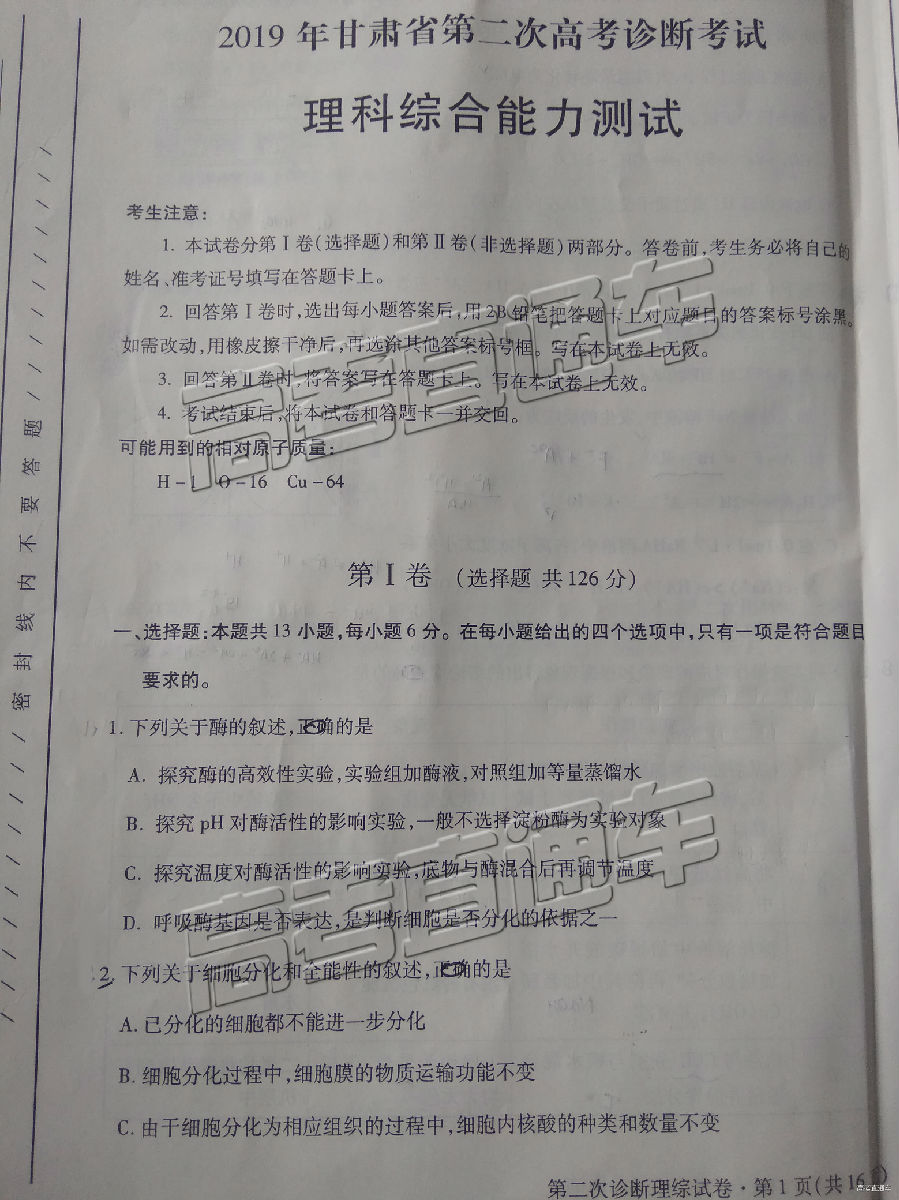 2019 年甘肃省第二次高考诊断考试
理科综合能力测试
考生注意:
1. 本试卷分第Ⅰ卷(选择题)和第Ⅱ卷(非选择题)两部分。答卷前,考生务必将自己的
姓名、准考证号填写在答题卡上。
2. 回答第Ⅰ卷时,选出每小题答案后,用2B铅笔把答题卡上对应题目的答案标号涂黑。
如需改动,用橡皮擦干净后,再选涂其他答案标号框。写在本试卷上无效。
3. 回答第Ⅱ卷时,将答案写在答题卡上。写在本试卷上无效。
4. 考试结束后,将本试卷和答题卡一并交回。
可能用到的相对原子质量:
H-1 O-16 Cu-64
第Ⅰ卷 (选择题 共126分)
一、选择题:本题共13小题,每小题6分。在每小题给出的四个选项中,只有一项是符合题目
要求的。
1. 下列关于酶的叙述,正确的是
A. 探究酶的高效性实验,实验组加酶液,对照组加等量蒸馏水
B. 探究pH对酶活性的影响实验,一般不选择淀粉酶为实验对象
C. 探究温度对酶活性的影响实验,底物与酶混合后再调节温度
D. 呼吸酶基因是否表达,是判断细胞是否分化的依据之一
2. 下列关于细胞分化和全能性的叙述,正确的是
A. 已分化的细胞都不能进一步分化
B. 细胞分化过程中,细胞膜的物质运输功能不变
C. 由于细胞分化为相应组织的过程中,细胞内核酸的种类和数量不变
第二次诊断理综试卷·第1页(共16
密封线内不要答题
高考直通车
高考直通车
高考直通车